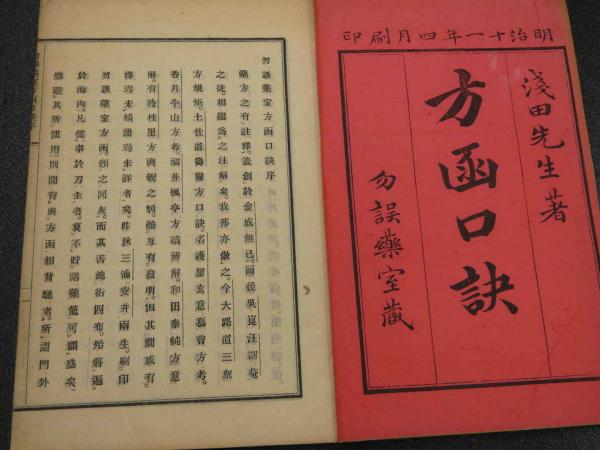 明治十一年四月刷印
淺田先生著
方函口訣
勿誤藥室藏
勿誤藥室方函口訣序
藥方之有註釋。蓋創於金成無己。而後吳崑汪訒菴
之徒。相繼爲之注解矣。我邦亦倣之。今大路道三衆
方規矩。土佐道壽醫方口訣。名護屋玄意纂言方考。
香月牛山方考。福井楓亭方讀辨解。和田泰純方意
解。有持桂里方輿輗之類。雖互有發明。但其間或有
擇焉未精語焉未詳者矣。昨秋三浦安井兩生。刷印
勿誤藥室方函。頒之同友。而其書 四布。殆將遍
於海內。凡從事於刀圭者。莫不貯諸藥籠。可謂盛矣。
然 其所使用。間聞有與方函相背馳者。所謂門外